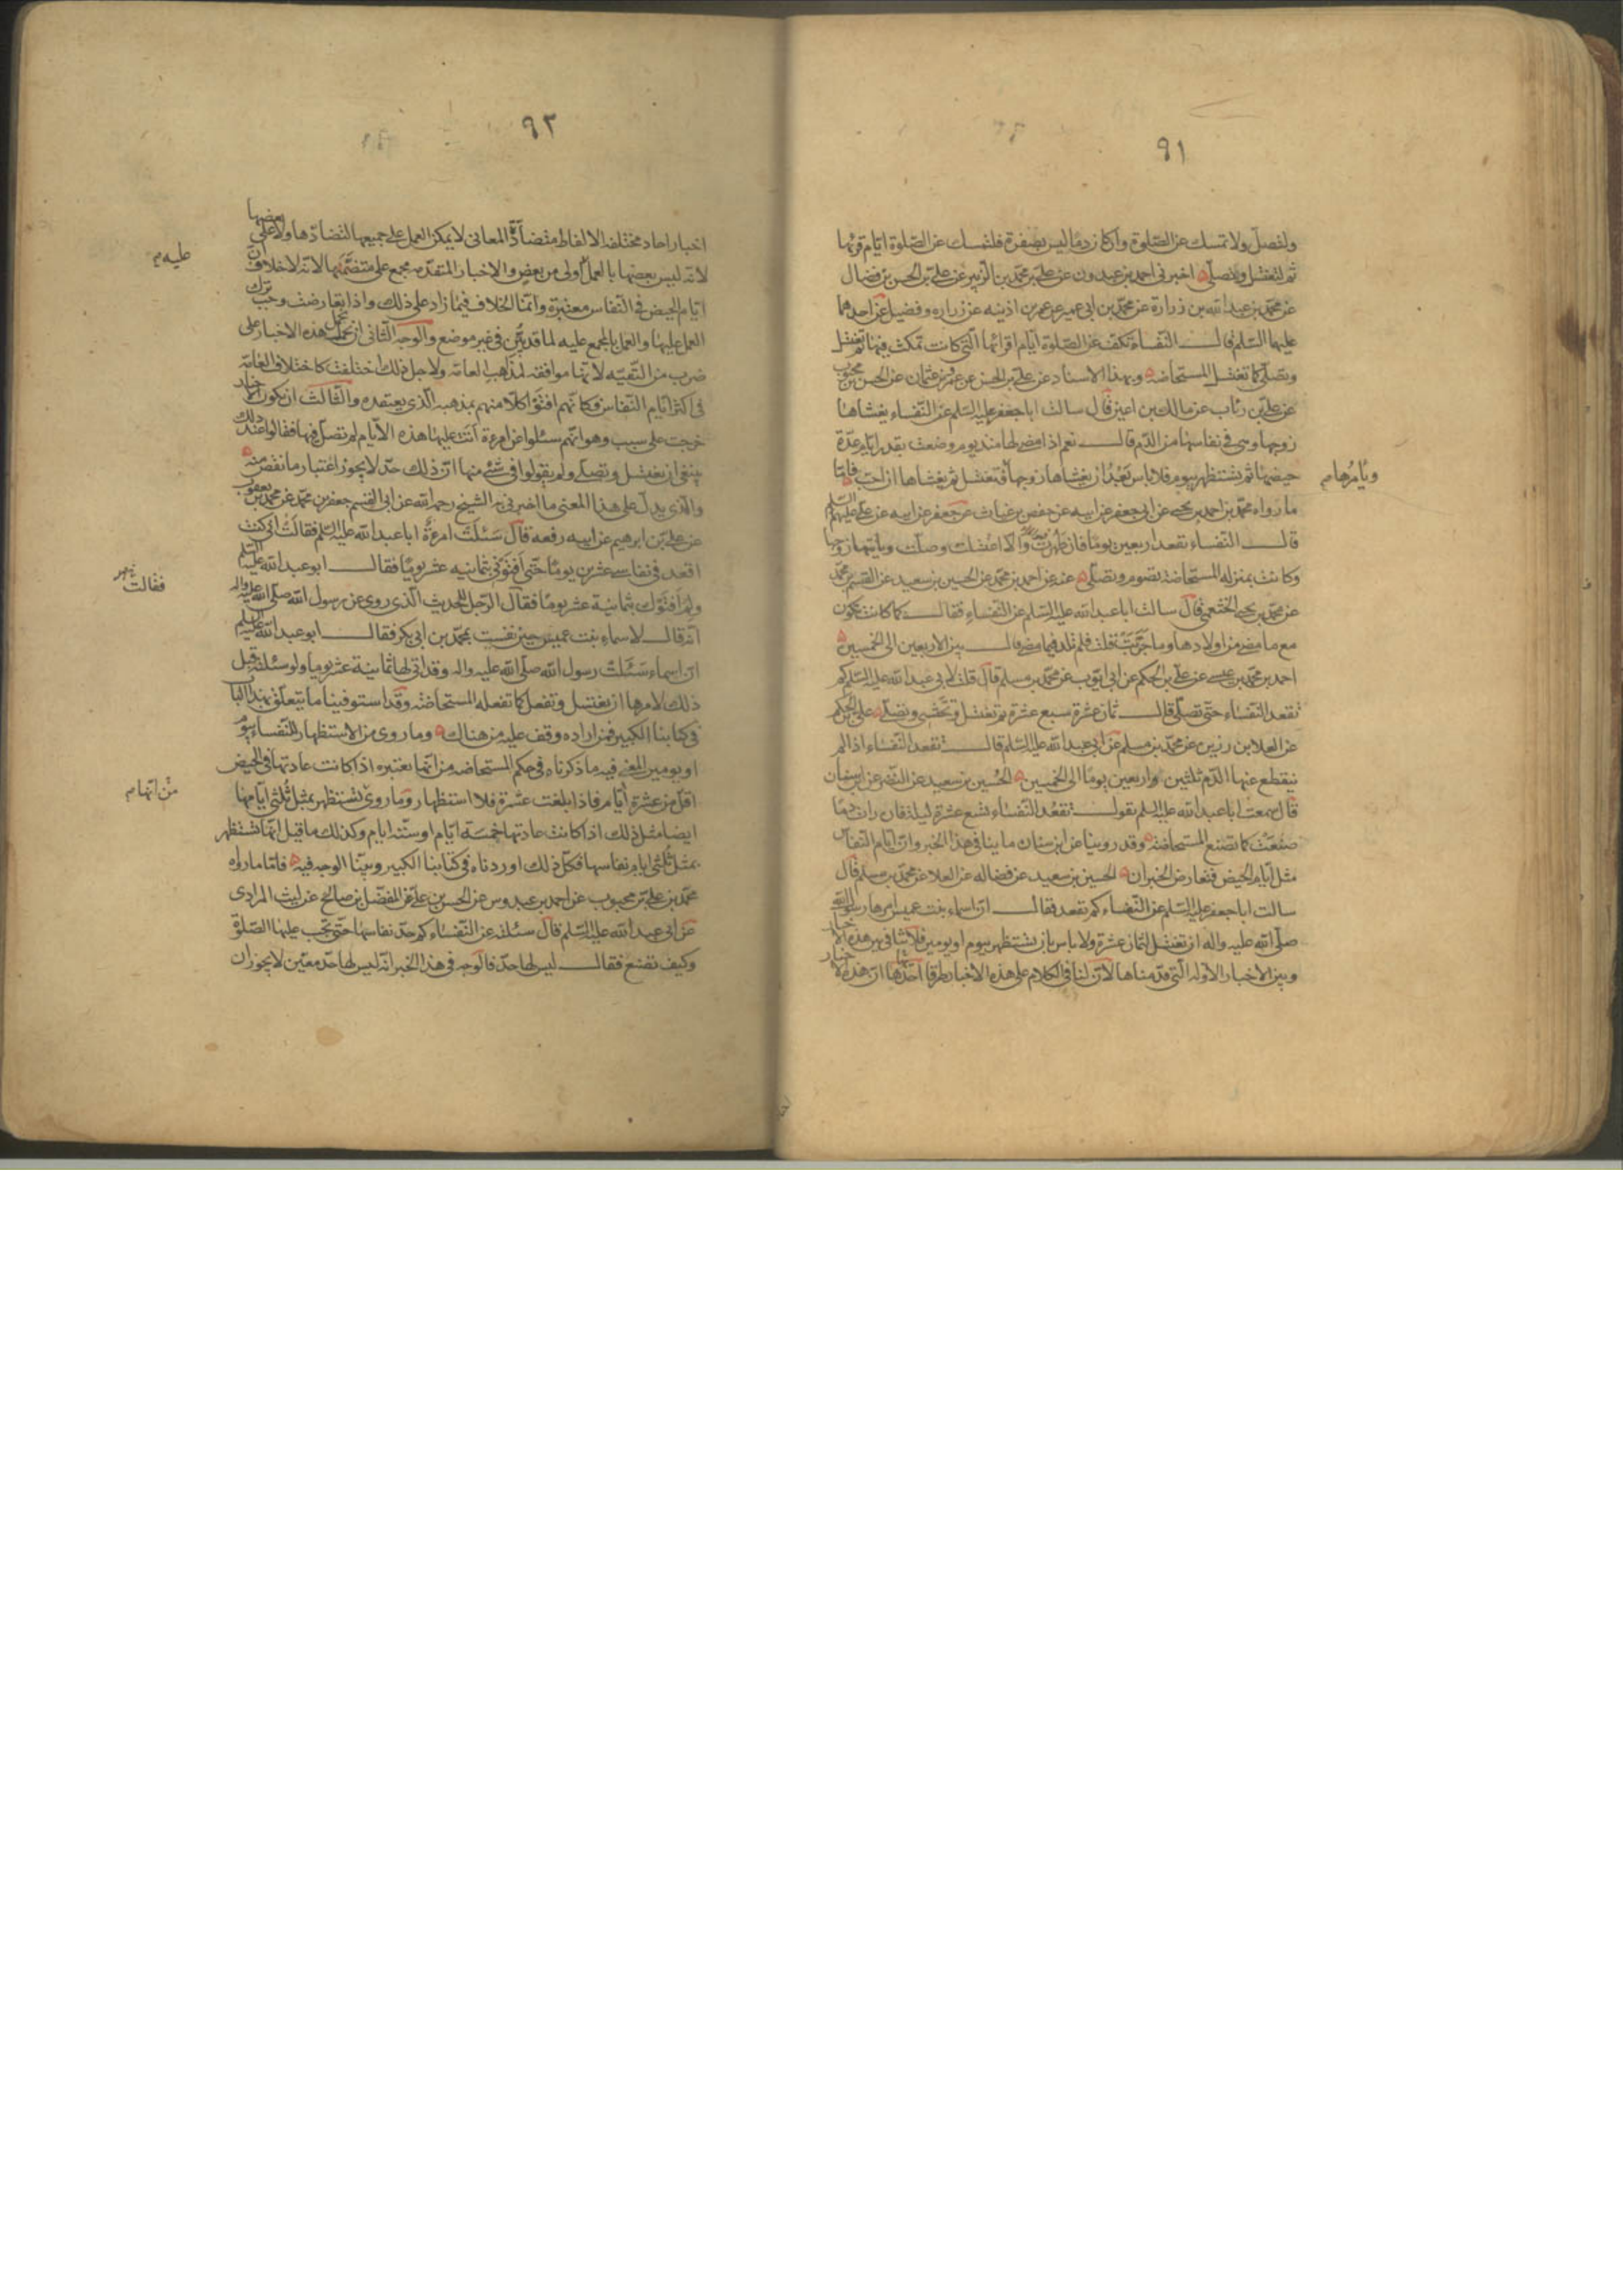 ٩١
ولتصل ولا تمسك عن الصلوة وان كان دما ليس بصفرة فلتمسك عن الصلوة ايام قرئها
ثم لتغتسل ولتصلي اخبرني احمد بن عبدون عن علي بن محمد بن الزبير عن علي بن الحسن بن فضال
عن محمد بن عبد الله بن زرارة عن محمد بن ابي عمير عن عمر بن اذينه عن زراره وفضيل عن احدهما
عليهما السلم قال النفساء تكف عن الصلوة ايام اقرائها التي كانت تمكث فيها ثم تغتسل
وتصلي كما تغتسل المستحاضه وبهذا الاسناد عن علي بن الحسن عن عمرو بن عثمان عن الحسن بن محبوب
عن علي بن رئاب عن مالك بن اعين قال سالت ابا جعفر عليه السلم عن النفساء يغشاها
زوجها وهي في نفاسها من الدم قال نعم اذا مضى لها منذ يوم وضعت بقدر ايام عدة
حيضها ثم تستظهر بيوم فلا باس بعد ان يغشاها زوجها فتغتسل ثم يغشاها ان احب فاما
ويامرها م
ما رواه محمد بن احمد بن يحيى عن ابي جعفر عن ابيه عن حفص بن غياث عن جعفر عن ابيه عن علي عليهم السلم
قال النفساء تقعد اربعين يوما فان طهرت والا اغتسلت وصلت وياتيها زوجها
وكانت بمنزله المستحاضة تصوم وتصلي عنه عن احمد بن محمد عن الحسين بن سعيد عن القسم بن محمد
عن محمد بن يحيى الخثعمي قال سالت ابا عبد الله عليه السلم عن النفساء فقال كما كانت تكون
مع ما مضى من اولادها وما جربت قلت فلم تلد فيما مضى قال بين الاربعين الى الخمسين
احمد بن محمد بن عيسى عن علي بن الحكم عن ابي ايوب عن محمد بن مسلم قال قلت لابي عبد الله عليه السلم كم
تقعد النفساء حتى تصلي قال ثمان عشرة سبع عشرة ثم تغتسل وتحتشي وتصلي علي بن الحكم
عن العلا بن رزين عن محمد بن مسلم عن ابي عبد الله عليه السلم قال تقعد النفساء اذا لم
ينقطع عنها الدم ثلثين او اربعين يوما الى الخمسين الحسين بن سعيد عن النضر عن ابن سنان
قال سمعت ابا عبد الله عليه السلم يقول تقعد النفساء تسع عشرة ليلة فان رات دما
صنعت كما تصنع المستحاضة وقد روينا عن ابن سنان ما ينافي هذا الخبر وان ايام النفاس
مثل ايام الحيض فتعارض الخبران الحسين بن سعيد عن فضاله عن العلا عن محمد بن مسلم قال
سالت ابا جعفر عليه السلم عن النفساء كم تقعد فقال ان اسماء بنت عميس امرها رسول الله
صلى الله عليه واله ان تغتسل لثمان عشرة ولا باس بان تستظهر بيوم او يومين فلا تنافي بين هذه الاخبار
وبين الاخبار الاوله التي قدمناها لان لنا في الكلام على هذه الاخبار طرقا احدها ان هذه الاخبار
٩٢
اخبار احاد مختلفه الالفاظ متضادة المعاني لا يمكن العمل على جميعها لتضادها ولا على بعضها
لانه ليس بعضها بالعمل اولى من بعض والاخبار المتقدمه مجمع على متضمنها لانه لا خلاف ان
عليه م
ايام الحيض في النفاس معتبرة وانما الخلاف فيما زاد على ذلك واذا تعارضت وجب ترك
العمل عليها والعمل بالمجمع عليه لما قد بين في غير موضع والوجه الثاني ان نحمل هذه الاخبار على
ضرب من التقيه لانها موافقه لمذاهب العامة ولاجل ذلك اختلفت كاختلاف العامة
في اكثر ايام النفاس فكانهم افتوا كلا منهم بمذهبه الذي يعتقده والثالث ان يكون الاخبار
خرجت على سبب وهو انهم سئلوا عن امرءة اتت عليها هذه الايام لم تصل فيها فقالوا عند ذلك
ينبغي ان تغتسل وتصلي ولم يقولوا في شئ منها ان ذلك حد لا يجوز اعتبار ما نقص منه
والذي يدل على هذا المعنى ما اخبرني به الشيخ رحمه الله عن ابي القسم جعفر بن محمد عن محمد بن يعقوب
عن علي بن ابرهيم عن ابيه رفعه قال سئلت امرءة ابا عبد الله عليه السلم فقالت اني كنت
اقعد في نفاسي عشرين يوما حتى افتوني بثمانيه عشر يوما فقال ابو عبد الله عليه السلم
ولم افتوك بثمانية عشر يوما فقال الرجل للحديث الذي روى عن رسول الله صلى الله عليه واله
فقالت
انه قال لاسماء بنت عميس حين نفست بمحمد بن ابي بكر فقال ابو عبد الله عليه السلم
ان اسماء سئلت رسول الله صلى الله عليه واله وقد اتى لها ثمانية عشر يوما ولو سئلته قبل
ذلك لامرها ان تغتسل وتفعل كما تفعله المستحاضة وقد استوفينا ما يتعلق بهذا الباب
في كتابنا الكبير فمن اراده وقف عليه من هناك وما روى من الاستظهار للنفساء بيوم
او يومين المعنى فيه ما ذكرناه في حكم المستحاضه من انما نعتبره اذا كانت عادتها في الحيض
من انها م
اقل من عشرة ايام فاذا بلغت عشرة فلا استظهار وما روى تستظهر بمثل ثلثي ايامها
ايضا مثل ذلك اذا كانت عادتها خمسة ايام او ستة ايام وكذلك ما قيل انها تستظهر
بمثل ثلثي ايام نفاسها فكل ذلك اوردناه في كتابنا الكبير وبينا الوجه فيه فاما ما رواه
محمد بن علي بن محبوب عن احمد بن عبدوس عن الحسن بن علي عن المفضل بن صالح عن ليث المرادي
عن ابي عبد الله عليه السلم قال سئلته عن النفساء كم حد نفاسها حتى تجب عليها الصلوة
وكيف تصنع فقال ليس لها حد فالوجه في هذا الخبر انه ليس لها حد معين لا يجوز ان